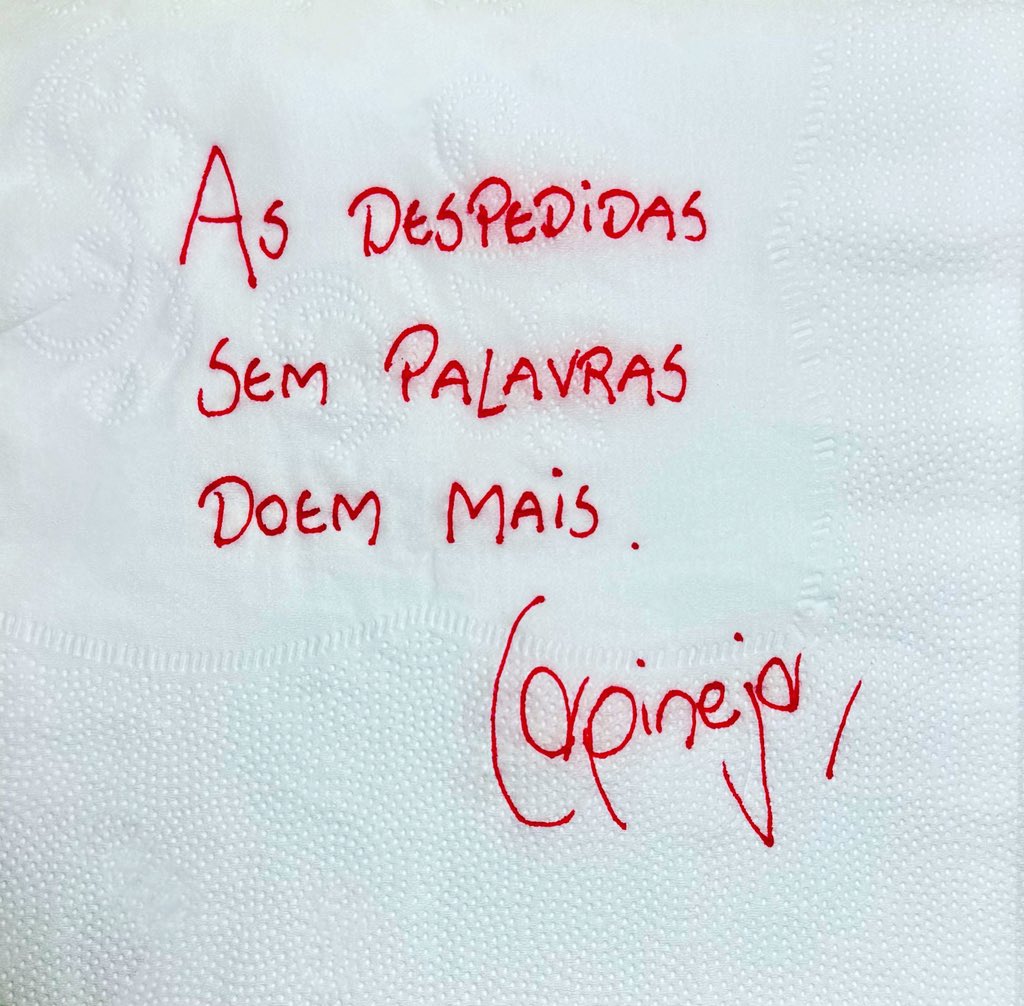 As DESPEDiDAS
SEM PALAVRAS
DOEM MAiS.
Carpinejar